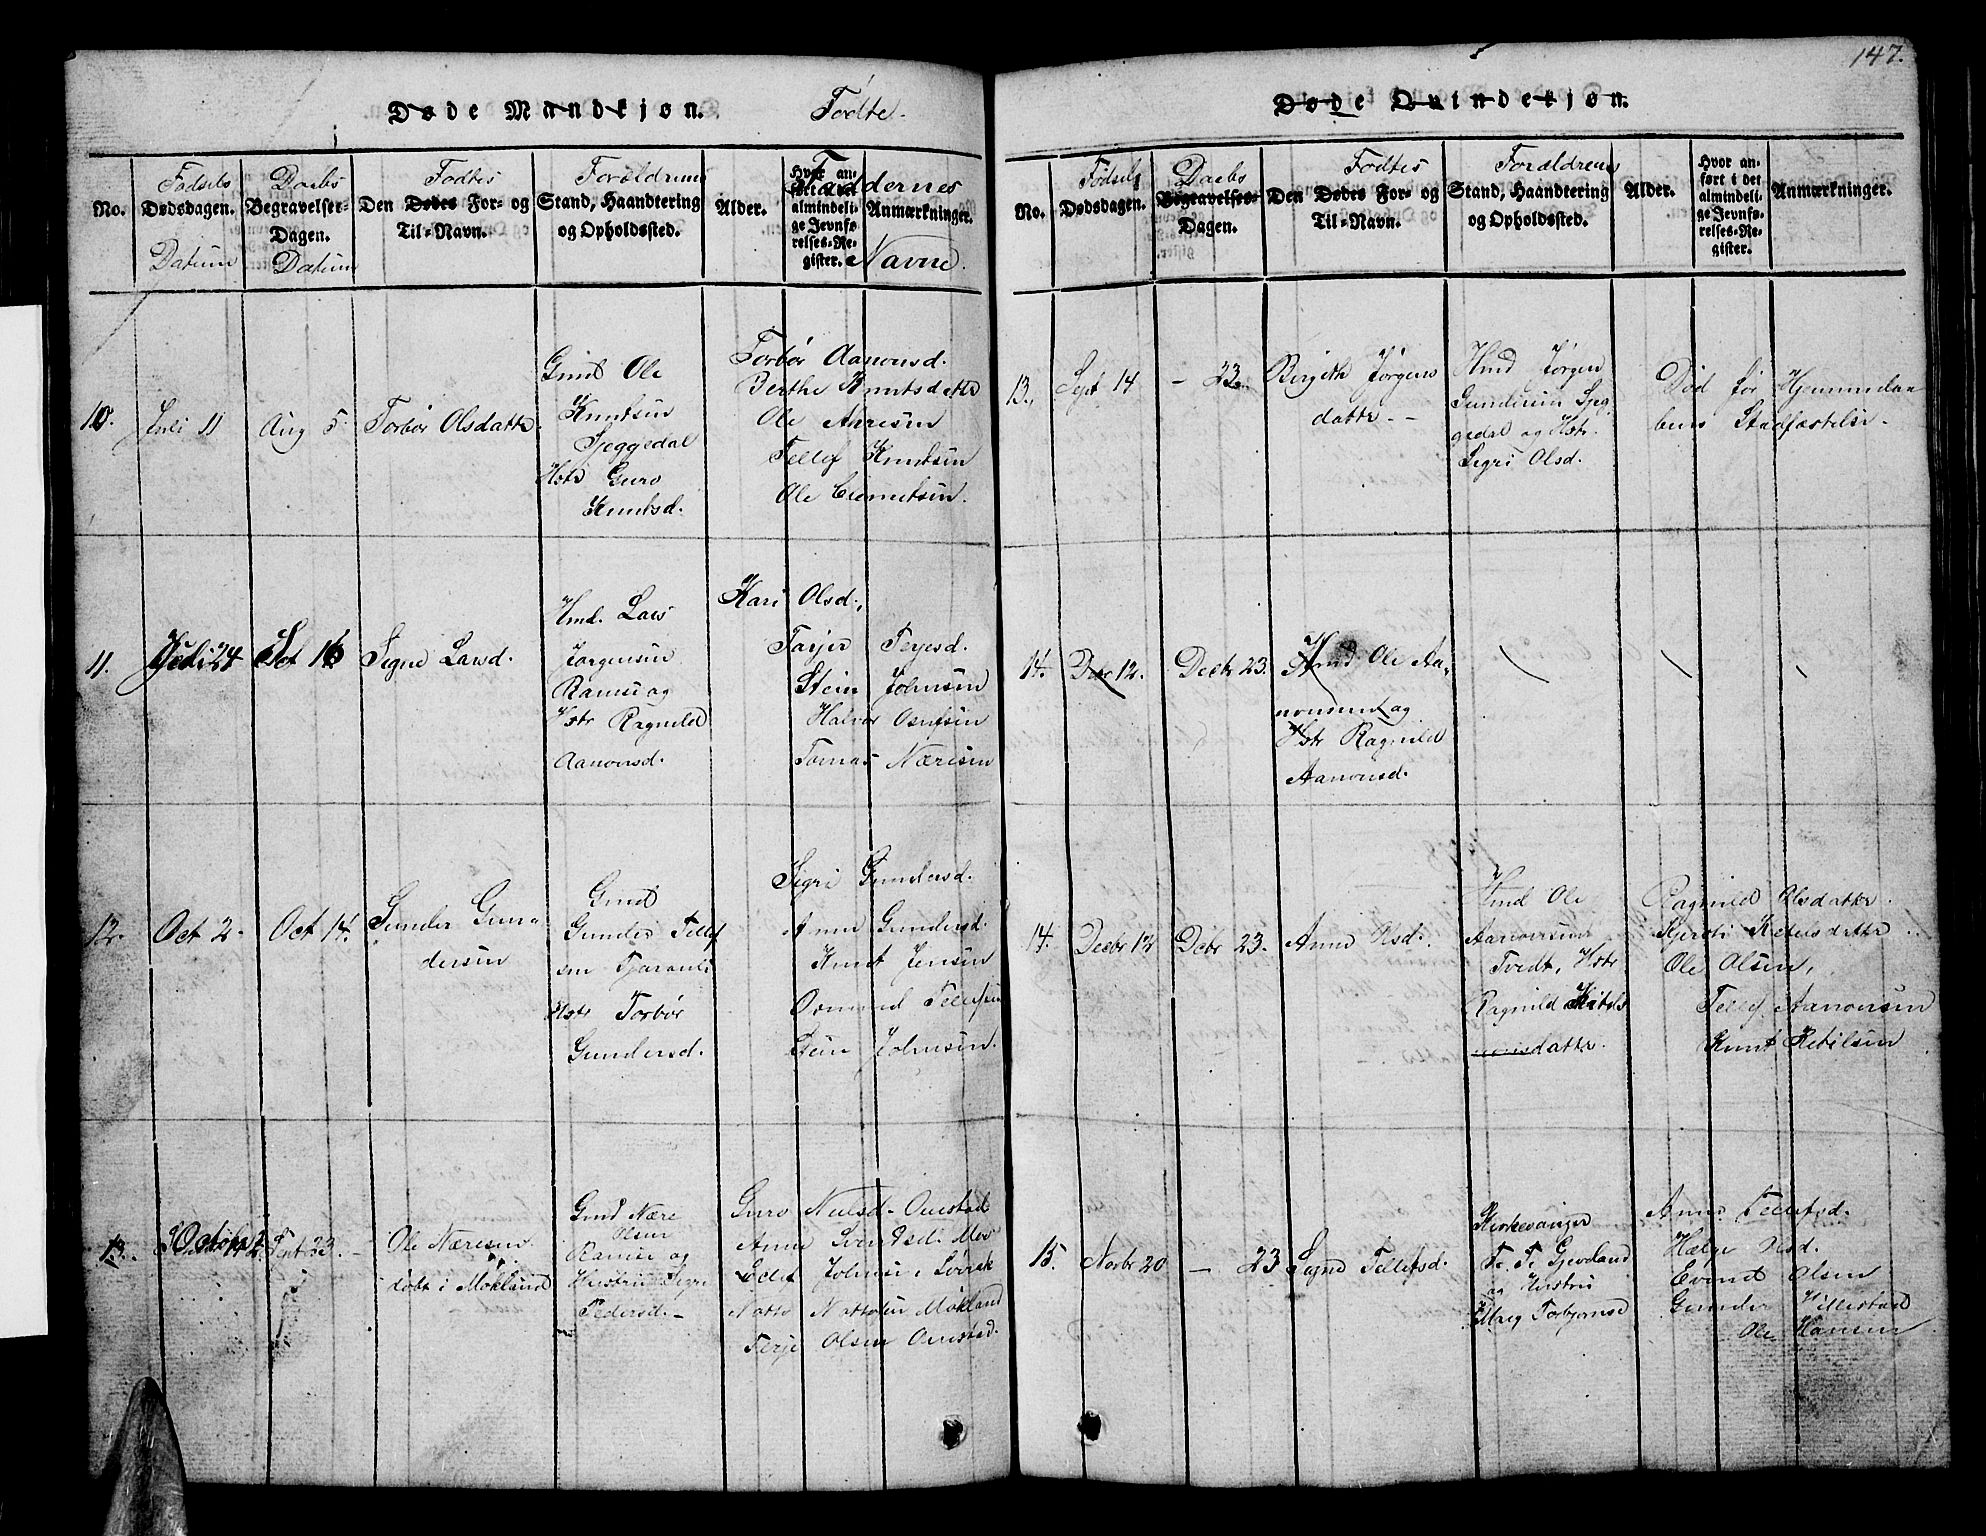 147.
Døde Mandkjøn. Fødte.
No.
Fødsels
Dødsdagen.
Datum
Daabs
Begravelses-
Dagen.
Datum
Fødtes
Den Dødes For- og
Til-Navn.
Forældrenes
Stand, Haandtering
og Opholdssted.
Alder.
Hvor an-
ført i det
almindeli-
ge Jevnfø-
relses-Re-
gister.
Faddernes
Anmærkninger.
Navne.
10.
Juli 11
Aug 5.
Torbør Olsdattr.
Gmd Ole
Knutsen
Sjeggedal
Hstr Guro
Knutsd.
Torbør Aanonsd.
Berthe Knutsdattr
Ole
Tellef Knutsen
Ole
11.
Juli 24
Oct 16
Signe Larsd.
Hmd. Lars
Jørgensen
Ramse og
Hstr Ragnild
Aanonsd.
Kari Olsd.,
Tarjer Terjesd.
Stein Johnsen
Halvor Osufsen
Tomas Næresen
12.
Oct 2.
Oct 14.
Gunder Gun-
dersen
Gmd
Gunder Tellef
sen
Hstr Torbør
Gundersd.
Sigri Gundersd.
Anne Gundersd.
Knut Jensen
Osmund Tellefsen
Stein Johnsen.
13.
23.
Ole Næresen
døbt i Mokland
Gmd Nære
Olsen
Ramse og
Hustru Sigri
Pedersd.
Guro Nielsd. Omstad
Anne Svendsd.
Johnsen
Natto Nattosen Mokland
Terje Olsen Omstad.
Døde Quindekjøn.
No.
Fødsels
Dødsdagen.
Daabs
Begravelses-
Dagen.
Fødtes
Den Dødes For- og
Til-Navn.
Forældrenes
Stand, Haandtering
og Opholdssted.
Alder.
Hvor an-
ført i det
almindeli-
ge Jevnfø-
relses-Re-
gister.
Anmærkninger.
13.
Sept 14
- 23.
Birgith Jørgens
dattr. -
Hmd Jørgen
Gundersen Sjeg
gedal og Hstr.
Sigri Olsd.
Død før Hjemmedaa
bens Stadfæstelse.
14.
Decbr 12.
Decbr 23.
Hmd Ole Aa-
nonsen og
Hstr Ragnild
Aanonsd.
14.
Decbr 12
Debr 23.
Anne Olsd.
Hmd Ole
Aanonsen
Tvedt, Hstr
Ragnild Ketels
dattr.
Ragnild Olsdattr.
Kjersti Ketelsdattr
Ole Olsen,
Tellef Aanonsen
Knut Ketilsen
15.
Novbr 20
- 23
Signe Tellefsd.
Kirkesanger
T. T. Gjevland
og Hustru
Mari Torbjornsd
Anne Tellefsd.
Hælge Olsd.
Evend Olsen
Gunder Hillestad
Ole Hansen